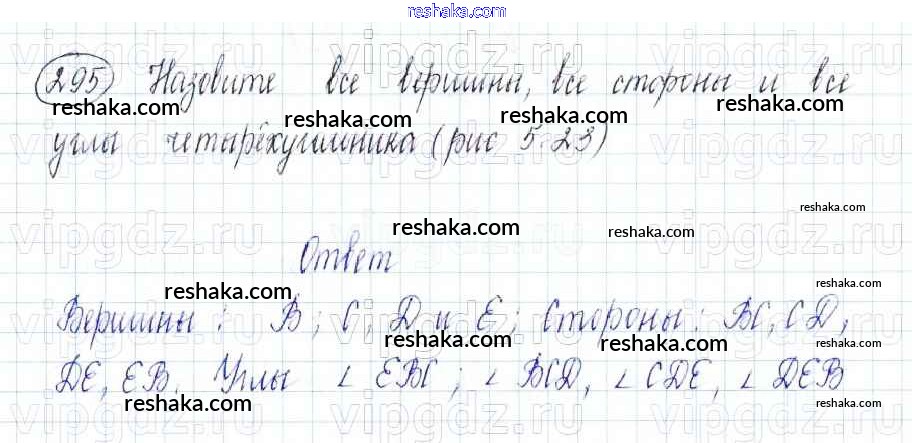 reshaka.com
295 Назовите все вершины, все стороны и все
reshaka.com reshaka.com reshaka.com
углы четырёхугольника (рис 5.23)
reshaka.com
reshaka.com
Ответ
reshaka.com reshaka.com
Вершины: В; С; D и Е; Стороны: ВС, СD,
reshaka.com reshaka.com reshaka.com
DE, EB. Углы ∠ EBC; ∠ BCD, ∠ CDE, ∠ DEB
reshaka.com reshaka.com